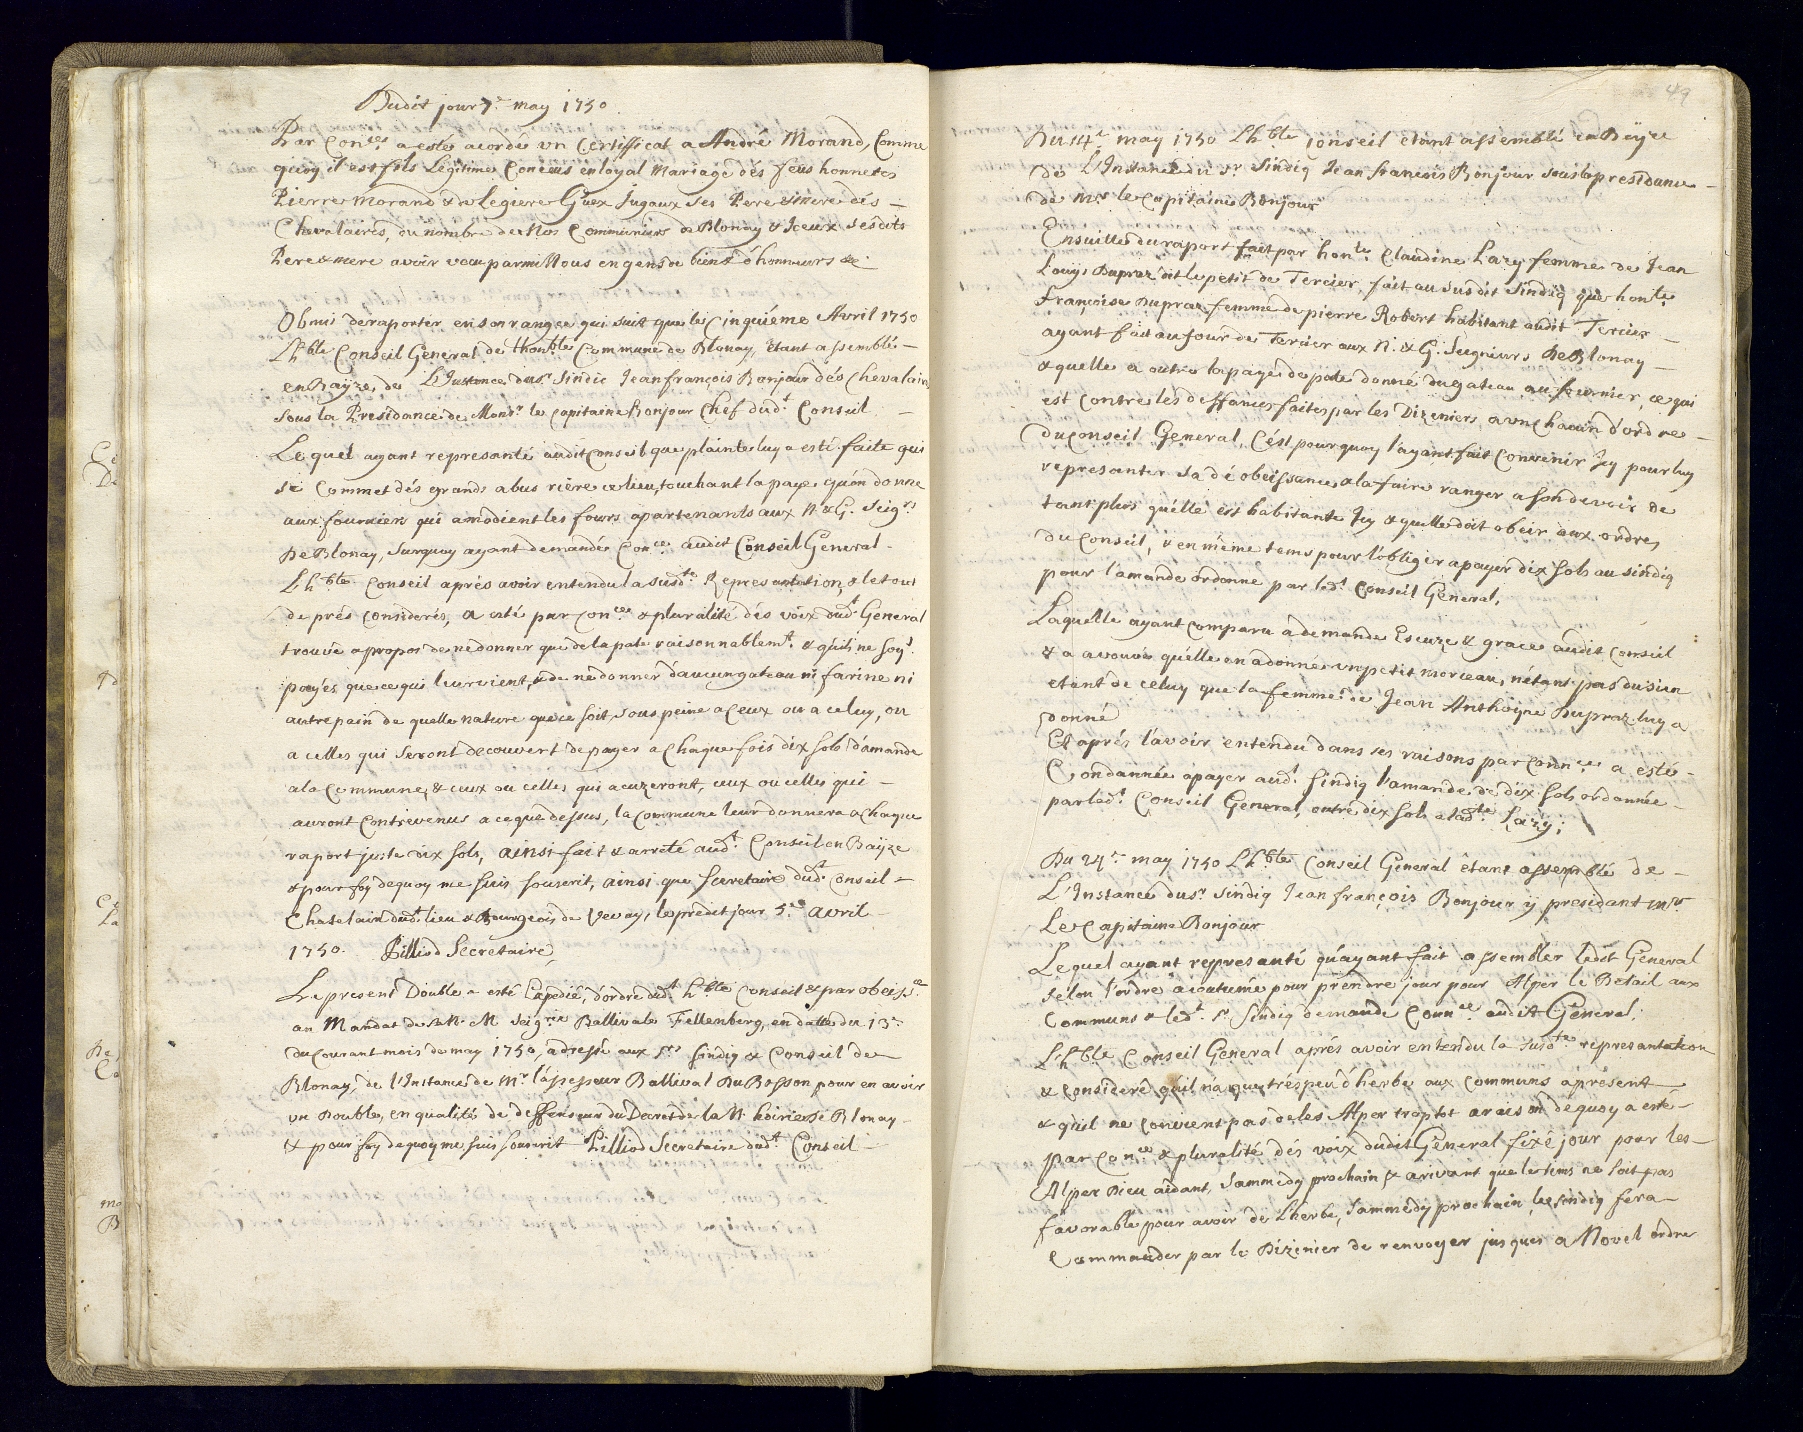 Dudit jour 7.e may 1750.
Par Con.ces a estés acordé vn Certifficat a André Morand, Comme
quoy il est fils Legitime Coneus en loyal Mariage dés feus honnetes
Pierre Morand & de Legiere Guex Jugaux ses Pere & mere dés –
Chevalaires, du nombre de Nos Communiers de Blonay & Jceux sesdits
Pere & mere avoir vecu parmi Nous en gens de biens d'honneurs &c
Obmis de raporter en son rangee qui suit que le Cinquiéme Avril 1750
L'h.ble Conseil General de Lhon.ble Commune de Blonay, êtant assemblé –
en Baÿze, de L'Instance du Sr. Sindic Jean françois Bonjour dés Chevalaires
sous la Presidance de Mons.r le Capitaine Bonjour Chef dud.t Conseil –
Lequel ayant represanté audit Conseil que plainte luy a esté faite qui
se Commet dés grands abus riére ce lieu, touchant la paye quón donne
aux fourniers qui amodient les fours apartenants aux N. & G. Seig.rs
De Blonay, surquoy ayant demandé Con.ce audit Conseil General –
L'h.ble Conseil aprés avoir entendu la susd.te Represantation, & le tout
de prés considerés, a esté par con.ce & pluralité dés voix dud.t General
trouvé apropos de ne donner que de la pate raisonnablem.t & qu'ils ne soy.t
payés que ce qui leur vient, & de ne donner d'aucun gateau ni farine ni
autre pain de quelle nature que ce soit, sous peine a ceux ou a celuy, ou
a celles qui seront decouvert de payer a Chaque fois dix sols d'amande
a la Commune, & ceux ou celles qui acuzeront, ceux ou celles qui –
auront Contrevenus a ce que dessus, la Commune leur donnera a Chaque
raport juste dix sols, ainsi fait & arreté aud.t Conseil en Baÿze
& pour foy dequoy me suis souscrit, ainsi que secretaire dud.t Conseil –
Chatelain dud.t lieu & Bourgeois de Vevay, le predit jour 5.e avril –
1750. Pilliod Secretaire
Le present Double a esté Expedié, d'ordre dud.t h.ble Conseil & par obeiss.ce
au Mandat de sa N. M Seig.rie Ballivale Fellenberg, en datte du 13.e
du Courant mois de may 1750, adressé aux S.rs Sindiq & Conseil de
Blonay, de l'Instance de M.r lássesseur Ballival Du Bosson pour en avoir
vn Double, en qualité de deffenseur du Decret de la N. hoirie De Blonay –
& pour foy dequoy me suis souscrit Pilliod Secretaire dud.t Conseil –
49
Du 14.e may 1750 L'h.ble Conseil etant assemblé en Beÿze
de L'Instance du Sr. Sindiq Jean francois Bonjour sous la presidance –
de Mr. le Capitaine Bonjour
Ensuitte du raport fait par hon.te Claudine Lazy femme de Jean
Louÿs Dupraz dit le petit de Tercier, fait au susdit Sindiq que hon.te
Françoise Dupraz femme de pierre Robert habitant audit Tercier –
ayant fait au four de Tercier aux N. & G. Seigneurs De Blonay –
& quelle a outre la paye de pate donné du gateau au fournier, ce qui
est contre les deffances faites par les Dizeniers, a vn Chacun d'ordre –
du Conseil General, C'ést pourquoy l'ayant fait Convenir Jcy pour luy
represanter sa déobeissance & la faire ranger a son devoir de
tant plus quélle est habitante Jcy & quelle doit obeir aux ordres
du Conseil, & en même tems pour l'obliger a payer dix sols au sindiq
pour l'amande ordonne par led.t Conseil General,
Laquelle ayant Comparu a demande Escuze & grace audit Conseil
& a avoués quélle en a donnée vn petit morceau, nétant pas du sien
etant de celuy que la femme de Jean Anthoyne Dupraz luy a
donné
Et aprés l'avoir entendu dans ses raisons par conn.ce a esté –
Condannée a payer aud.t sindiq l'amande de dix sols ordonnée –
par led.t Conseil General, outre dix sols a lad.te Lazy;
Du 24.e may 1750 L'h.ble Conseil General étant assemblé de –
L'Instance du Sr. Sindiq Jean françois Bonjour ÿ presidant Mr.
Le Capitaine Bonjour
Lequel ayant represanté quáyant fait assembler ledit General
selon l'ordre acoutumé pour prendre jour pour Alper le Betail aux
Communs & led.t Sr. Sindiq demande Conn.ce audit General.
L'h.ble Conseil General aprés avoir entendu la susd.te represantation
& consideré qu'il n'a que très peu d'herbe aux Communs apresent
& quil ne Convient pas de les Alper trop tot a raison dequoy a esté –
par Con.ce & pluralité dés voix dudit General fixé jour pour les –
Alper Dieu aidant, Sammedy prochain & arivant que le tems ne soit pas
favorable pour avoir de Lherbe, Sammedy prochain, le sindiq fera –
Commander par le Dizenier de renvoyer jusques a Novel ordre